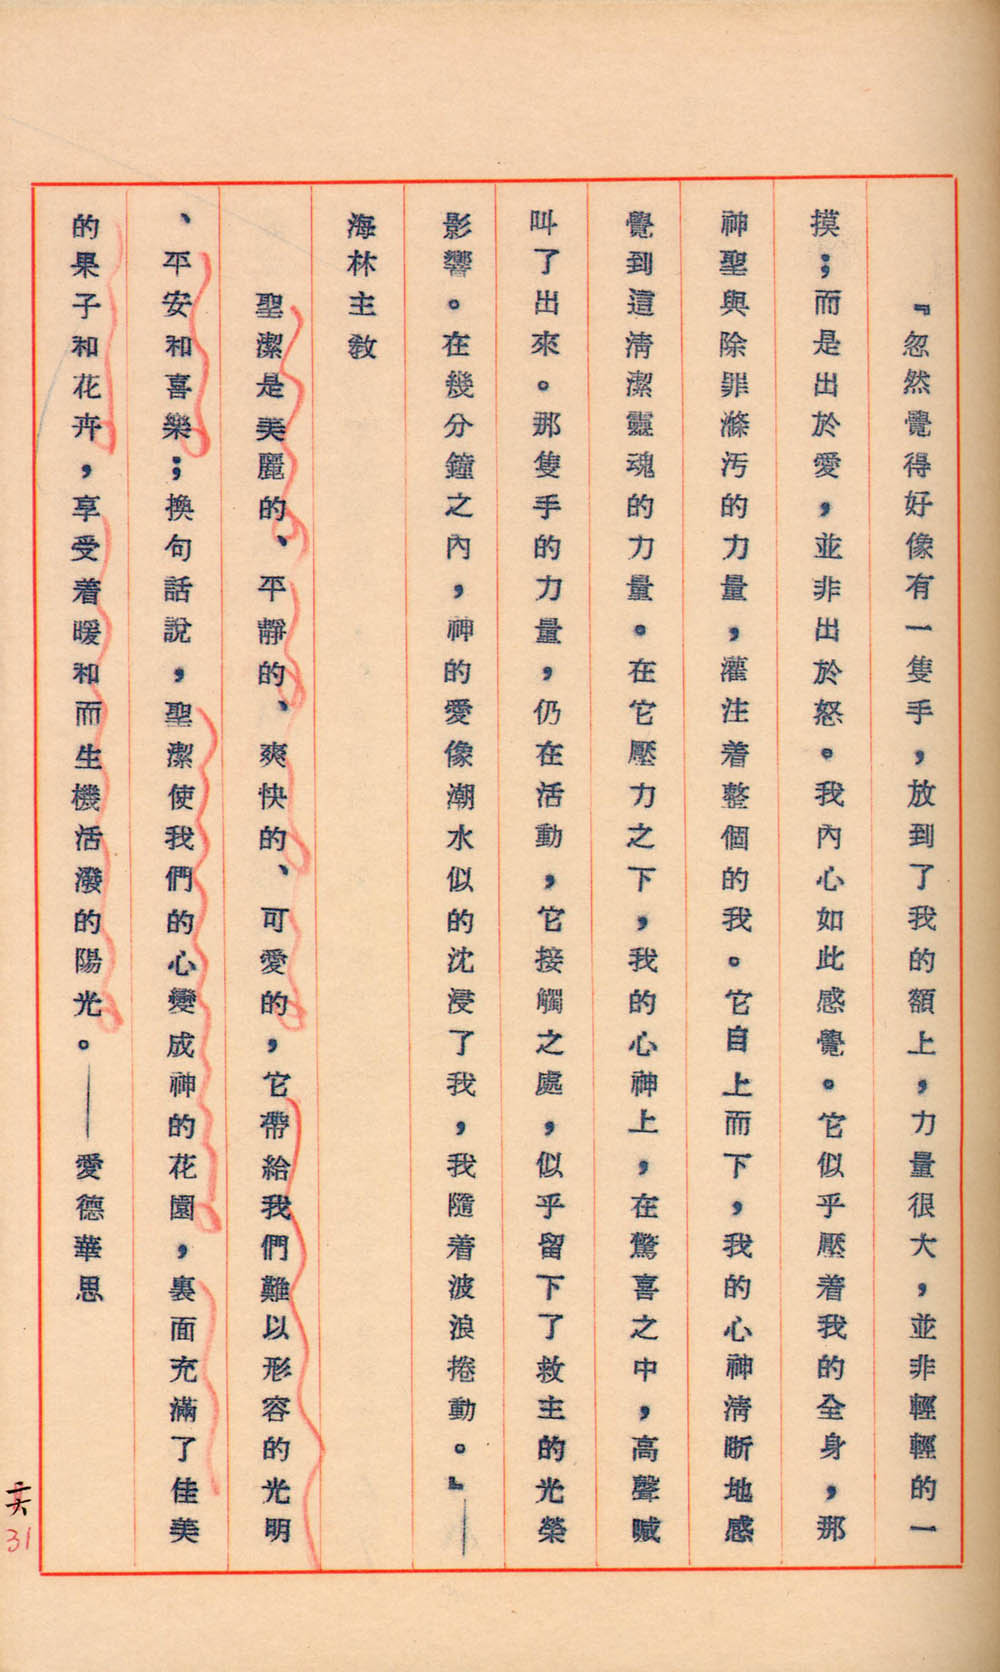 『忽然覺得好像有一隻手，放到了我的額上，力量很大，並非輕輕的一
摸；而是出於愛，並非出於怒。我內心如此感覺。它似乎壓着我的全身，那
神聖與除罪滌汚的力量，灌注着整個的我。它自上而下，我的心神淸晰地感
覺到這淸潔靈魂的力量。在它壓力之下，我的心神上，在驚喜之中，高聲喊
叫了出來。那隻手的力量，仍在活動，它接觸之處，似乎留下了救主的光榮
影響。在幾分鐘之內，神的愛像潮水似的沈浸了我，我隨着波浪捲動。』——
海林主敎
聖潔是美麗的、平靜的、爽快的、可愛的，它帶給我們難以形容的光明
、平安和喜樂；換句話說，聖潔使我們的心變成神的花園，裏面充滿了佳美
的果子和花卉，享受着暖和而生機活潑的陽光。——愛德華思
31